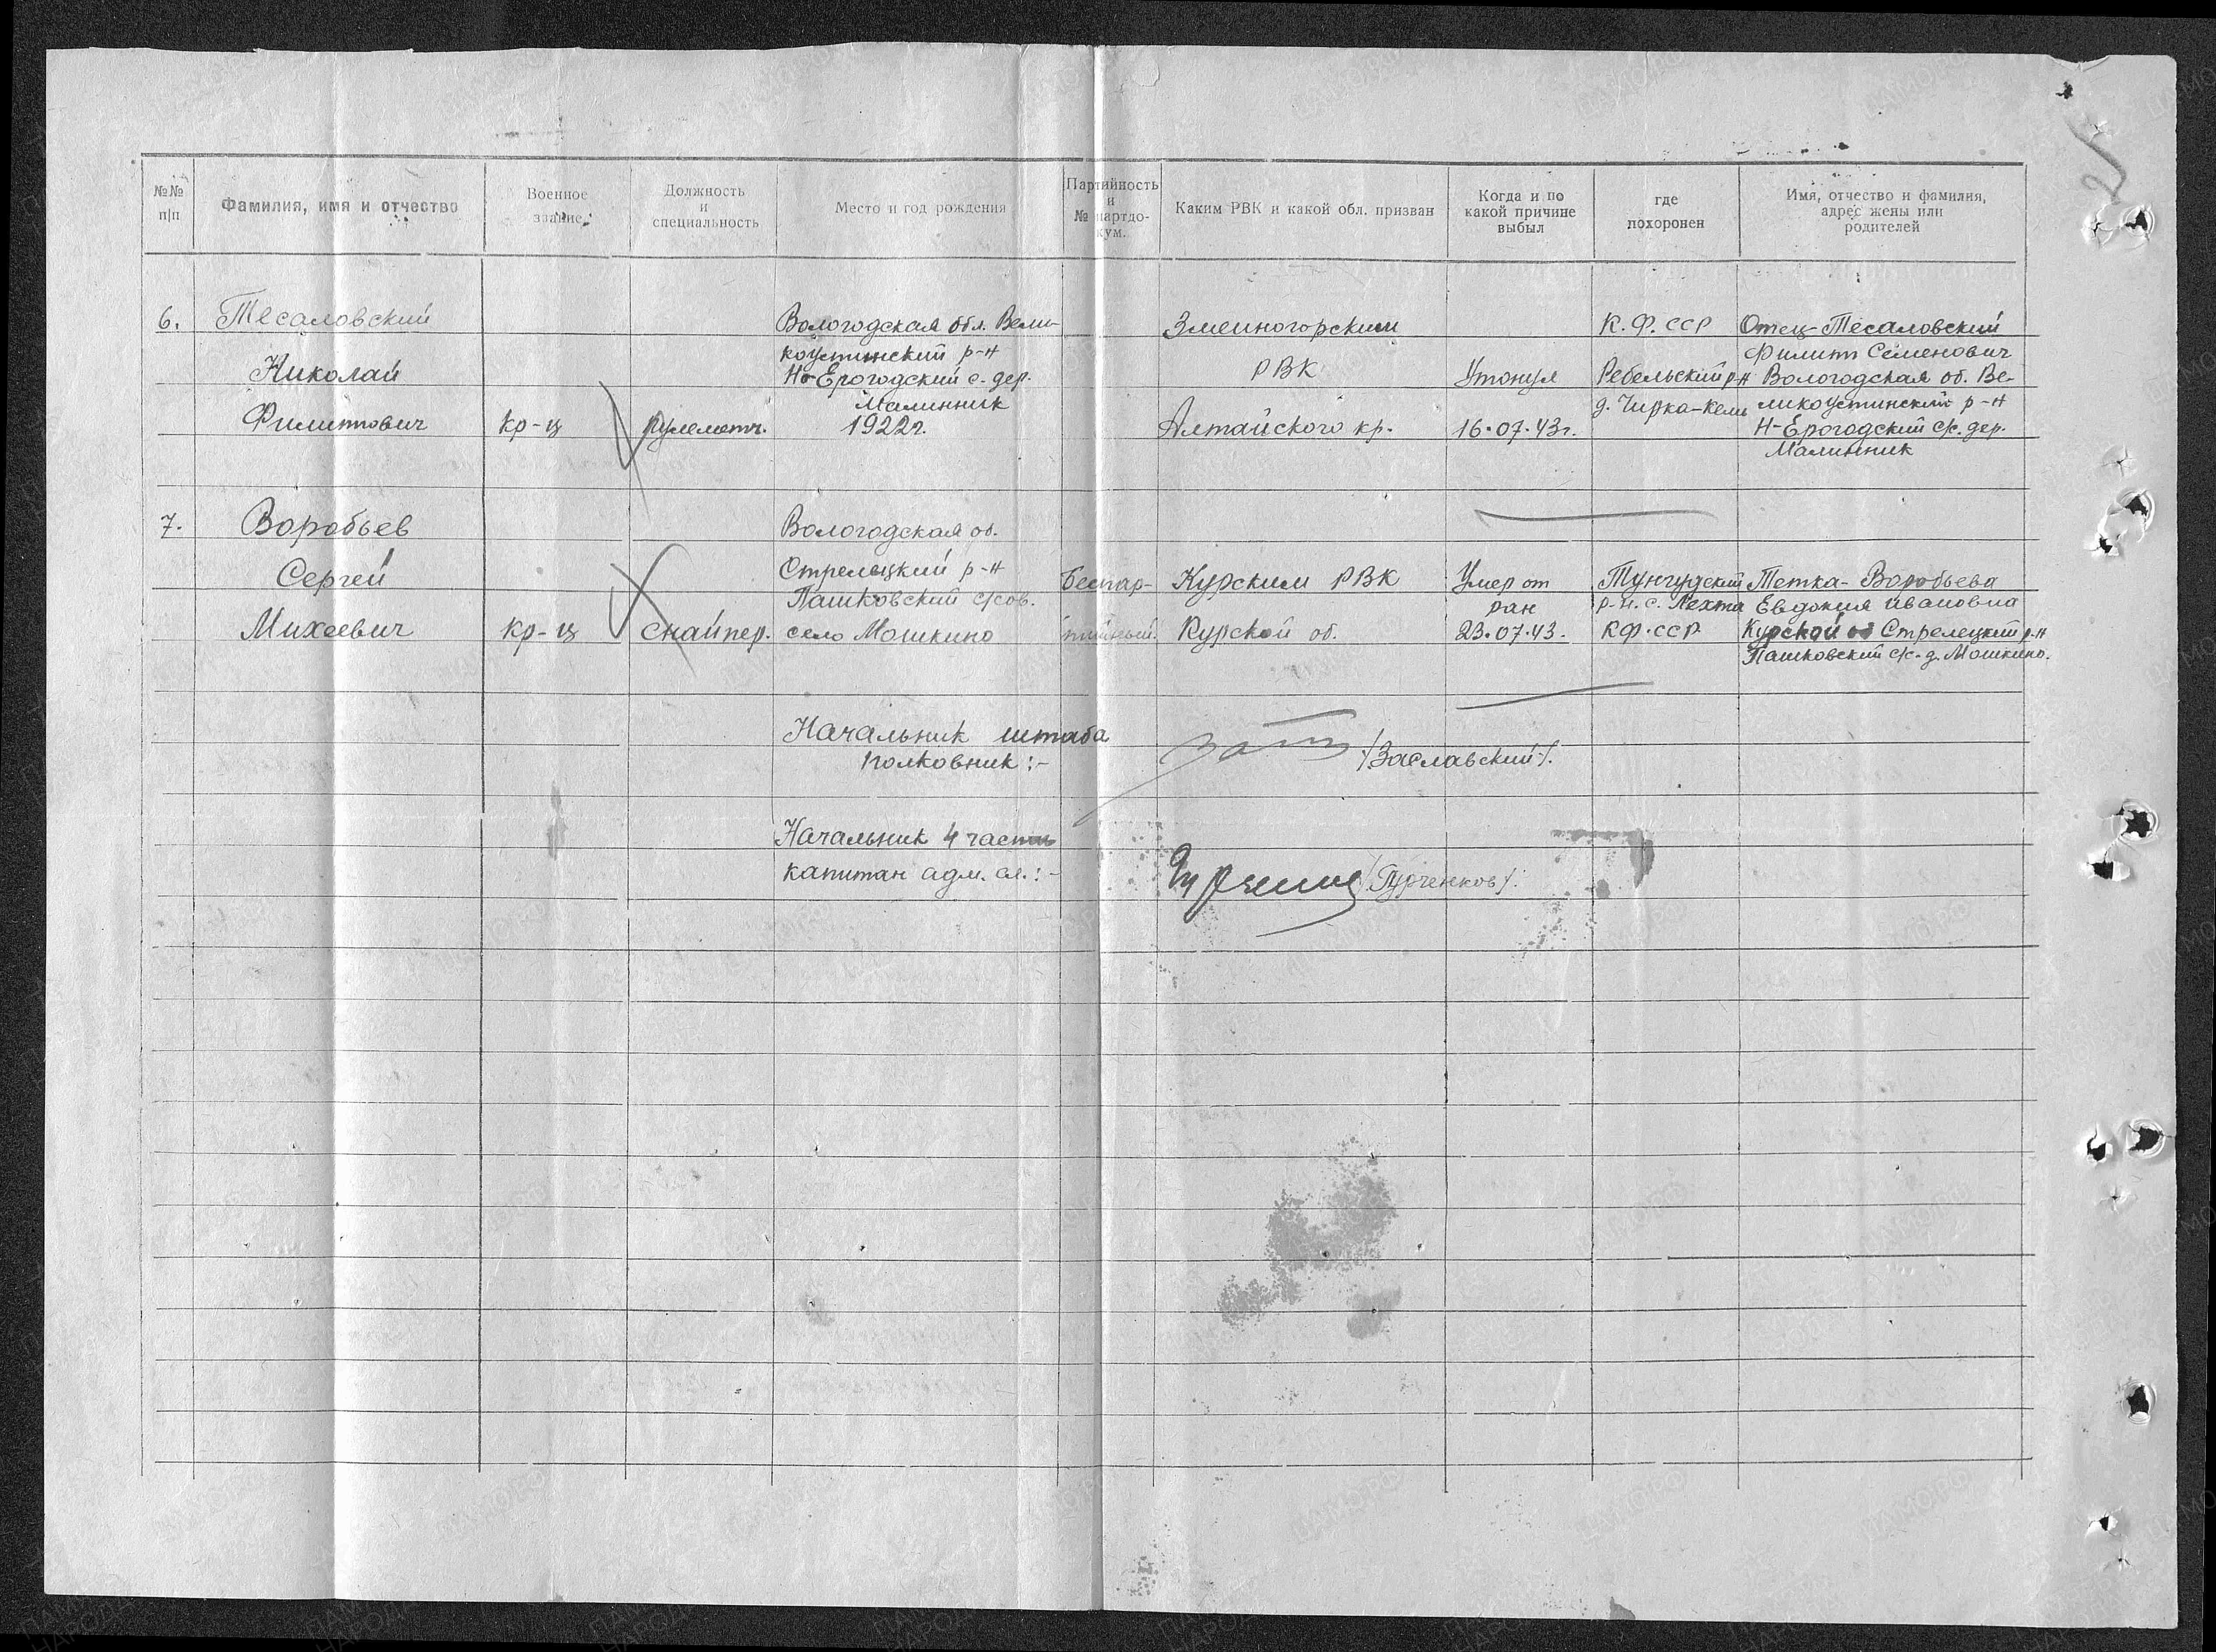 №№ п/п
Фамилия, имя и отчество
Военное звание
Должность и специальность
Место и год рождения
Партийность и № партдокум.
Каким РВК и какой обл. призван
Когда и по какой причине выбыл
где похоронен
Имя, отчество и фамилия, адрес жены или родителей
6.
Тесаловский
Николай
Филиппович
кр-ц
пулеметч.
Вологодская обл. Вели-
коустинский р-н
Н-Ерогодский с. дер.
Малинник
1922г.
Змеиногорским
РВК
Алтайского кр.
Утонул
16.07.43г.
К.Ф.ССР
Ребельский р-н
д. Чирка-Кемь
Отец-Тесаловский
Филипп Семенович
Вологодская об. Ве-
ликоустинский р-н
Н-Ерогодский с/с. дер.
Малинник
7.
Воробьев
Сергей
Михеевич
кр-ц
снайпер.
Вологодская об.
Стрелецкий р-н
Пашковский с/сов.
село Мошкино
Беспар-
тийный.
Курским РВК
Курской об.
Умер от
ран
23.07.43.
Тунгудский
р-н. с. Лехта
КФ.ССР.
Тетка-Воробьева
Евдокия Ивановна
Курской об Стрелецкий р-н
Пашковский с/с-д. Мошкино.
Начальник штаба
полковник:-
/Заславский/.
Начальник 4 части
капитан адм. сл.:-
/Гурченков/.